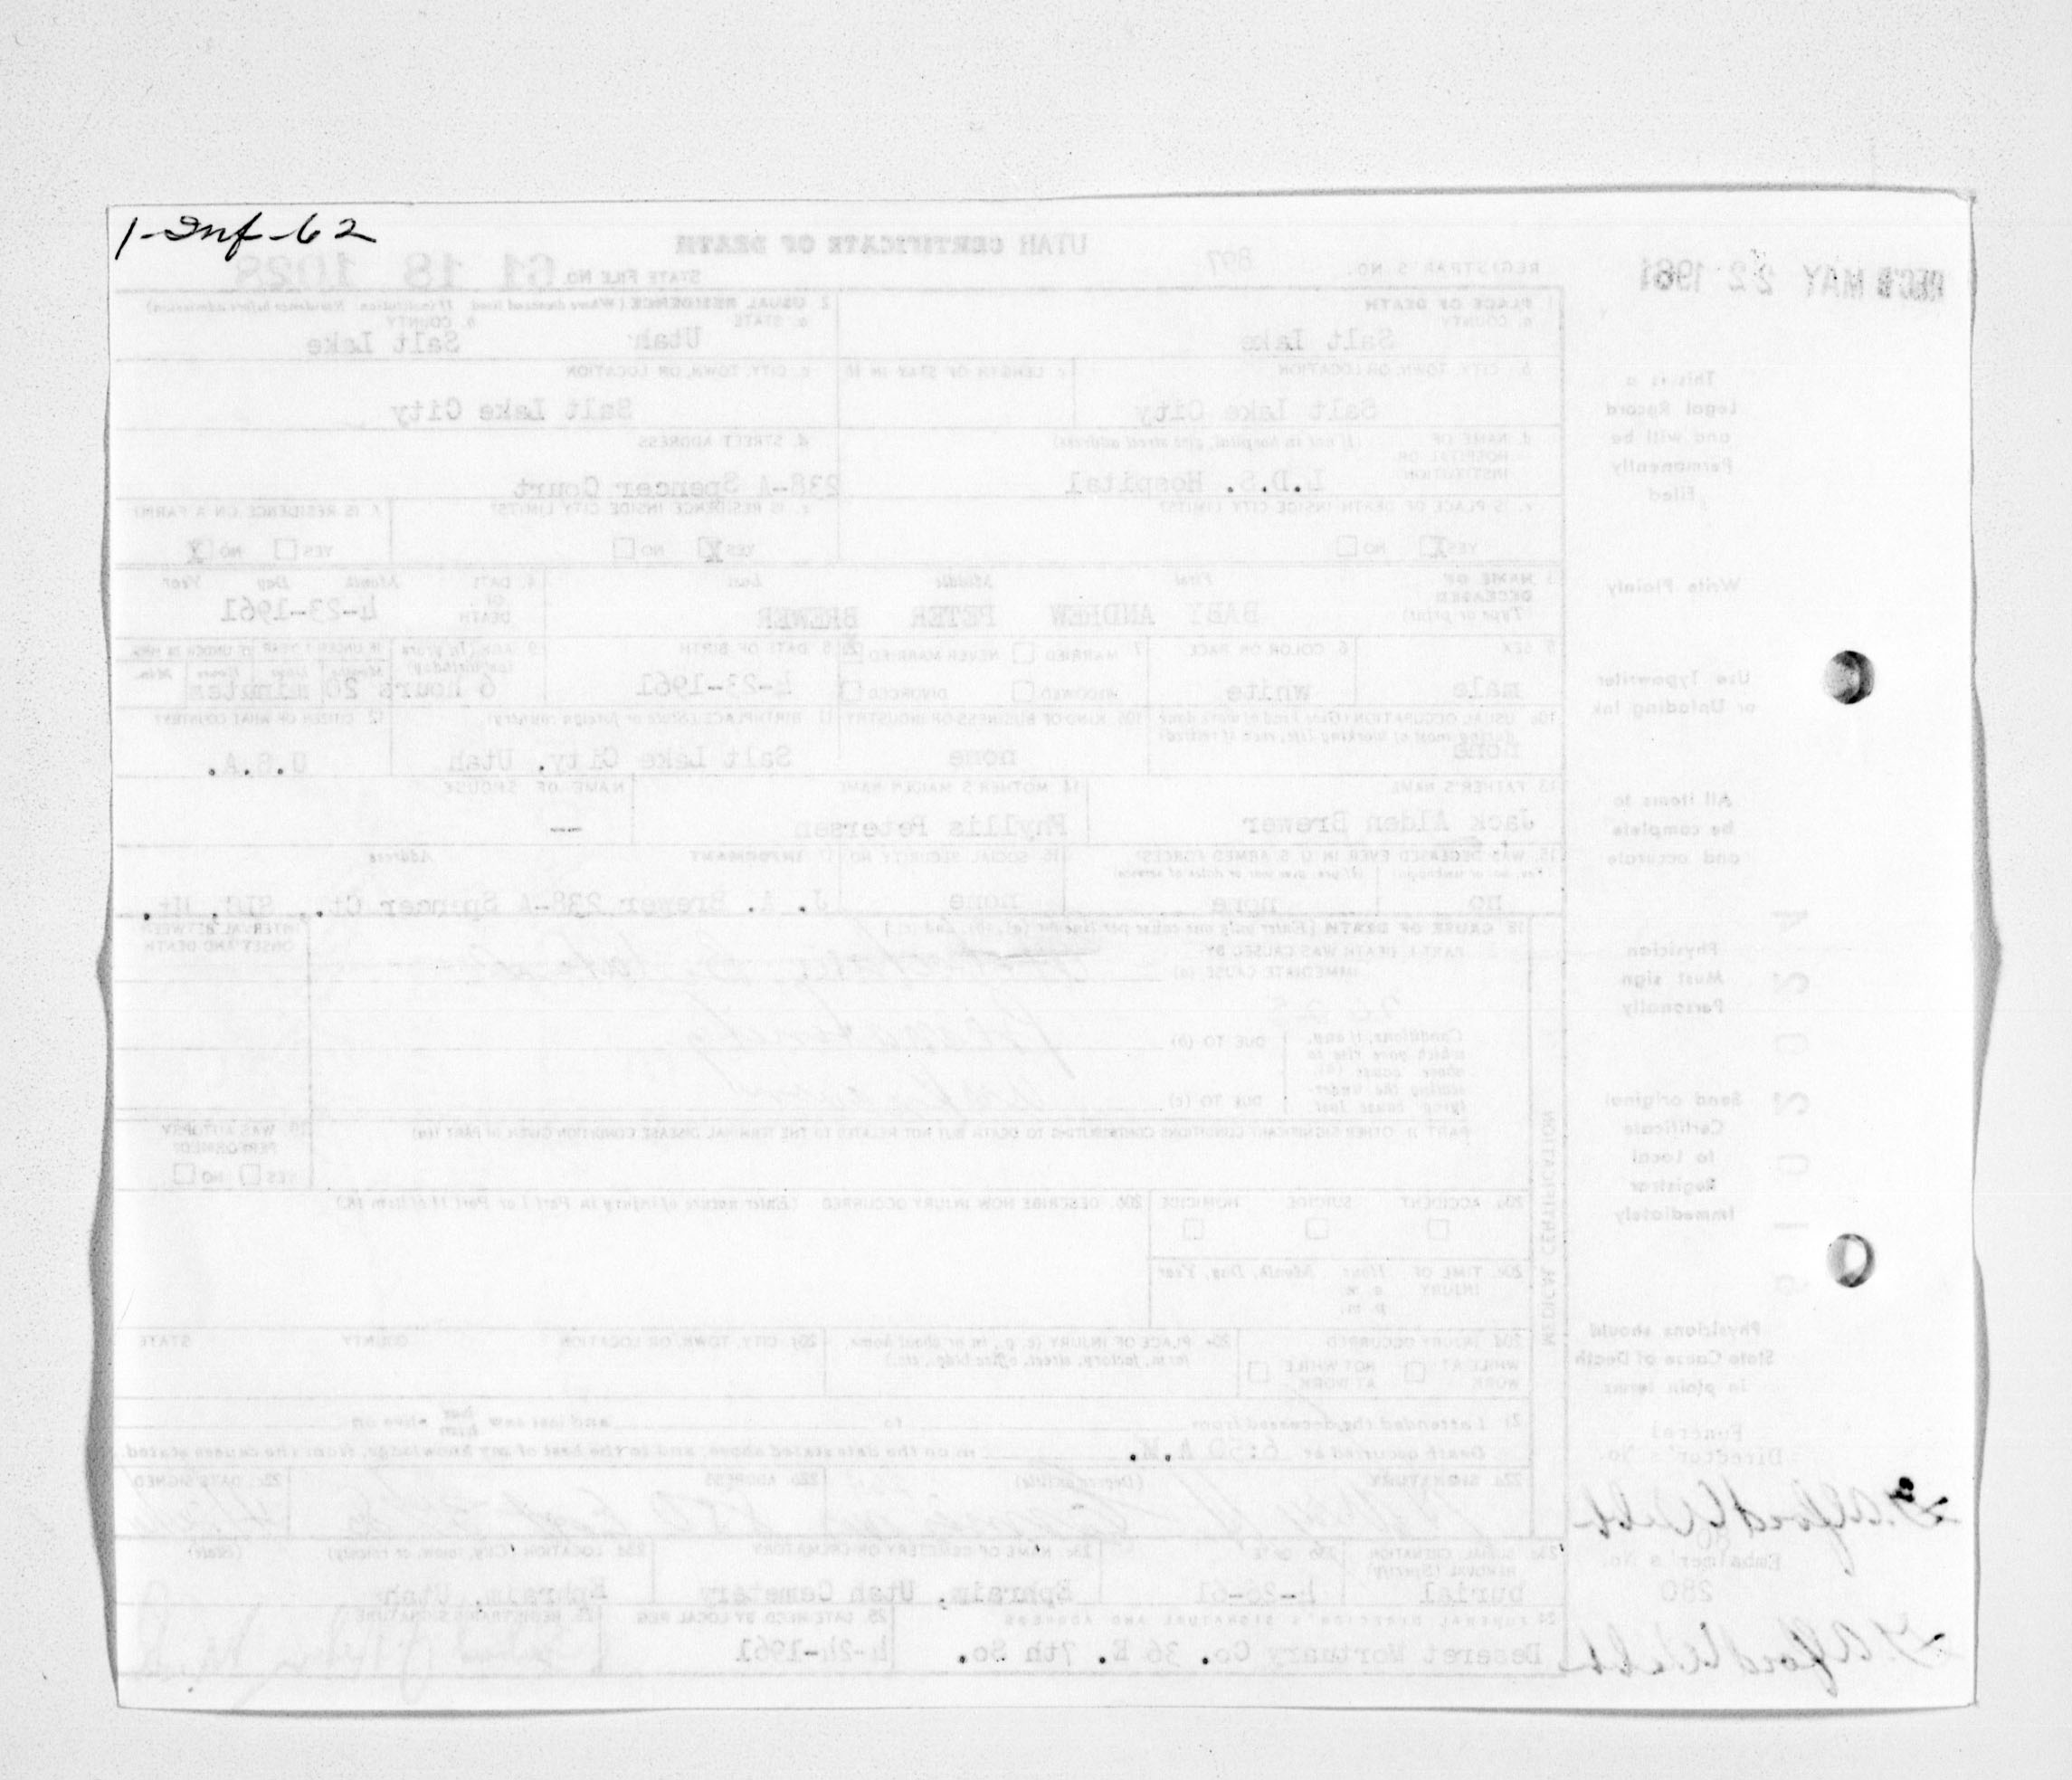 1-Inf-62
REC'D MAY 22 1961
UTAH CERTIFICATE OF DEATH
REGISTRAR'S NO. 897
STATE FILE NO. 61 18 1028
This is a
Legal Record
and will be
Permanently
Filed
Write Plainly
Use Typewriter
or Unfading Ink
All items to
be complete
and accurate
Physician
Must sign
Personally
Send original
Certificate
to Local
Registrar
Immediately
Physicians should
State Cause of Death
in plain terms
Funeral
Director's No.
Embalmer's No.
280
1. PLACE OF DEATH
a. COUNTY
Salt Lake
2. USUAL RESIDENCE (Where deceased lived. If institution: Residence before admission)
a. STATE
Utah
b. COUNTY
Salt Lake
b. CITY, TOWN, OR LOCATION
Salt Lake City
c. LENGTH OF STAY IN 1b
c. CITY, TOWN, OR LOCATION
Salt Lake City
d. NAME OF HOSPITAL OR INSTITUTION
(If not in hospital, give street address)
L.D.S. Hospital
d. STREET ADDRESS
238-A Spencer Court
e. IS PLACE OF DEATH INSIDE CITY LIMITS?
YES X NO
e. IS RESIDENCE INSIDE CITY LIMITS?
YES X NO
f. IS RESIDENCE ON A FARM?
YES NO X
3. NAME OF DECEASED (Type or print)
First Middle Last
BABY ANDREW PETER BREWER
4. DATE OF DEATH
Month Day Year
4-23-1961
5. SEX
male
6. COLOR OR RACE
white
7. MARRIED NEVER MARRIED X
WIDOWED DIVORCED
8. DATE OF BIRTH
4-23-1961
9. AGE (In years last birthday)
IF UNDER 1 YEAR IF UNDER 24 HRS.
Months Days Hours Min.
6 hours 20 minutes
10a. USUAL OCCUPATION (Give kind of work done during most of working life, even if retired)
none
10b. KIND OF BUSINESS OR INDUSTRY
none
11. BIRTHPLACE (State or foreign country)
Salt Lake City, Utah
12. CITIZEN OF WHAT COUNTRY?
U.S.A.
13. FATHER'S NAME
Jack Alden Brewer
14. MOTHER'S MAIDEN NAME
Phyllis Petersen
NAME OF SPOUSE
--
15. WAS DECEASED EVER IN U.S. ARMED FORCES?
(Yes, no, or unknown) (If yes, give war or dates of service)
no none
16. SOCIAL SECURITY NO.
none
17. INFORMANT Address
J. A. Brewer 238-A Spencer Ct., SLC, Ut.
18. CAUSE OF DEATH [Enter only one cause per line for (a), (b), and (c).]
PART I. DEATH WAS CAUSED BY:
IMMEDIATE CAUSE (a)
INTERVAL BETWEEN ONSET AND DEATH
Conditions, if any, which gave rise to above cause (a), stating the underlying cause last.
DUE TO (b) Prematurity
DUE TO (c) unknown
PART II. OTHER SIGNIFICANT CONDITIONS CONTRIBUTING TO DEATH BUT NOT RELATED TO THE TERMINAL DISEASE CONDITION GIVEN IN PART I(a)
19. WAS AUTOPSY PERFORMED?
YES NO
MEDICAL CERTIFICATION
20a. ACCIDENT SUICIDE HOMICIDE
20b. DESCRIBE HOW INJURY OCCURRED (Enter nature of injury in Part I or Part II of item 18.)
20c. TIME OF INJURY
Hour Month, Day, Year
a. m.
p. m.
20d. INJURY OCCURRED
WHILE AT WORK NOT WHILE AT WORK
20e. PLACE OF INJURY (e. g., in or about home, farm, factory, street, office bldg., etc.)
20f. CITY, TOWN, OR LOCATION COUNTY STATE
21. I attended the deceased from to and last saw her him alive on
Death occurred at 6:50 A.M. m on the date stated above, and to the best of my knowledge, from the causes stated.
22a. SIGNATURE (Degree or title)
22b. ADDRESS
22c. DATE SIGNED
23a. BURIAL, CREMATION, REMOVAL (Specify)
burial
23b. DATE
4-26-61
23c. NAME OF CEMETERY OR CREMATORY
Ephraim, Utah Cemetery
23d. LOCATION (City, town, or county) (State)
Ephraim, Utah
24. FUNERAL DIRECTOR'S SIGNATURE AND ADDRESS
Deseret Mortuary Co. 36 E. 7th So.
25. DATE REC'D BY LOCAL REG.
4-24-1961
26. REGISTRAR'S SIGNATURE